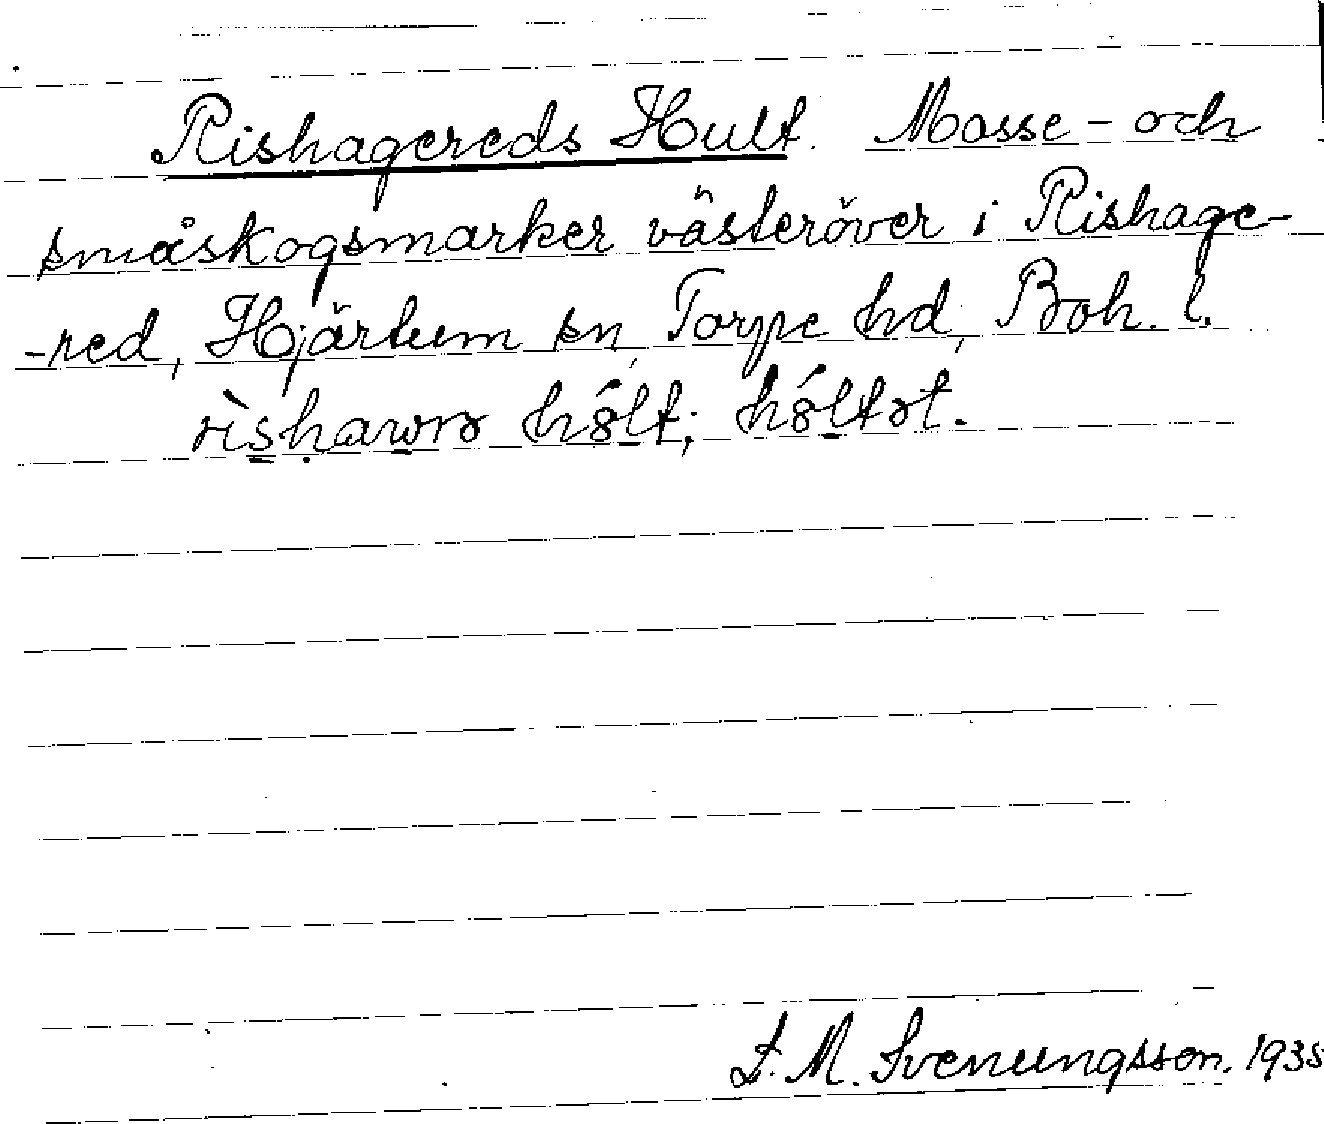 Rishagereds Hult. Mosse- och
småskogsmarker västeröver i Rishage-
-red, Hjärtum sn, Torpe hd, Boh. l.
hólt; 
L. M. Svenungsson. 1935